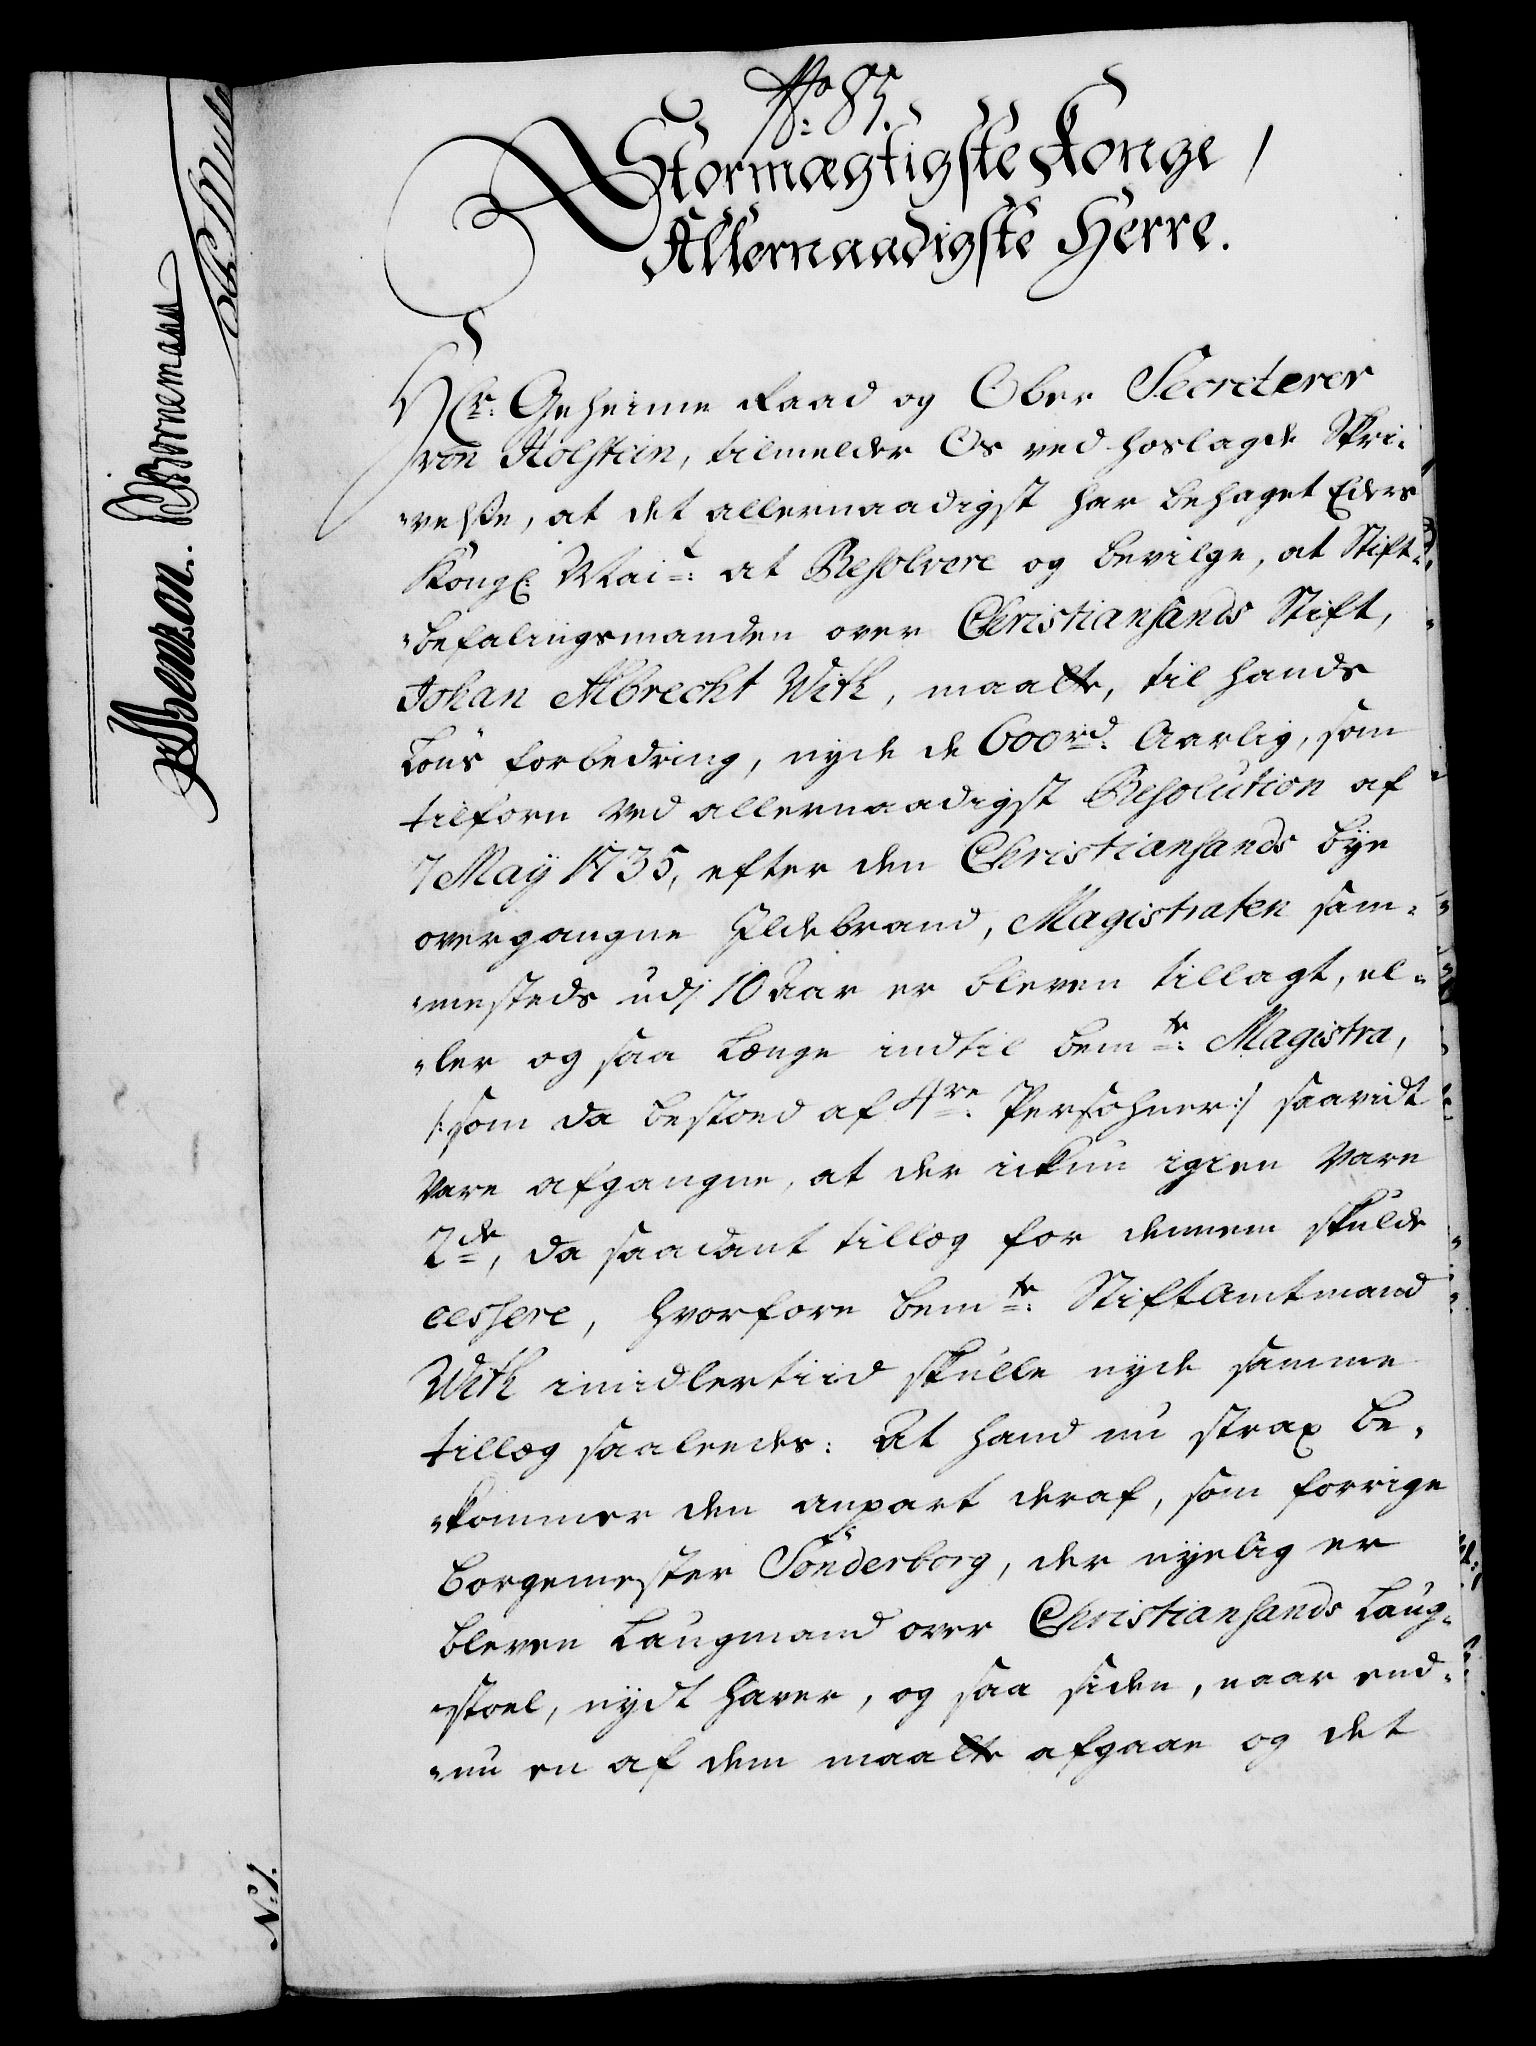 No: 85.
Stormægtigste Konge /
Allernaadigste Herre.
Hr: Geheime Raad og Ober Secreterer
von Holstein, tilmelder Os ved hoslagde Skri-
velse, at det allernaadigst har behaget Eders
Kongl: Mai: at Resolvere og bevilge, at Stift-
befalingsmanden over Christiansands Stift,
Johan Albrecht With, maatte, til hands
Løns forbedring, nyde de 600 rd: Aarlig, som
tilforn ved allernaadigst Resolution af
7 May 1735, efter den Christiansands bye
overgangne Ildebrand, Magistraten sam-
mesteds udj 10 Aar er bleven tillagt, el-
ler og saa længe indtil bemte: Magistra,
/: som da bestoed af 4re: Persohner :/ saavidt
vare afgangne, at der ickun igien vare
2de, da saadant tillæg for dennem skulde
cessere, hvorfore bemte: StiftAmtmand
With imidlertiid skulle nyde samme
tillæg saaleedes: At hand nu strax be-
kommer den anpart deraf, som forrige
Borgemester Sönderborg, der nyelig er
bleven Laugmand over Christiansands Laug-
stoel, nydt haver, og saa siden, naar end-
nu en af dem maatte afgaae og det
Benzon. Bornemann
N: 1.